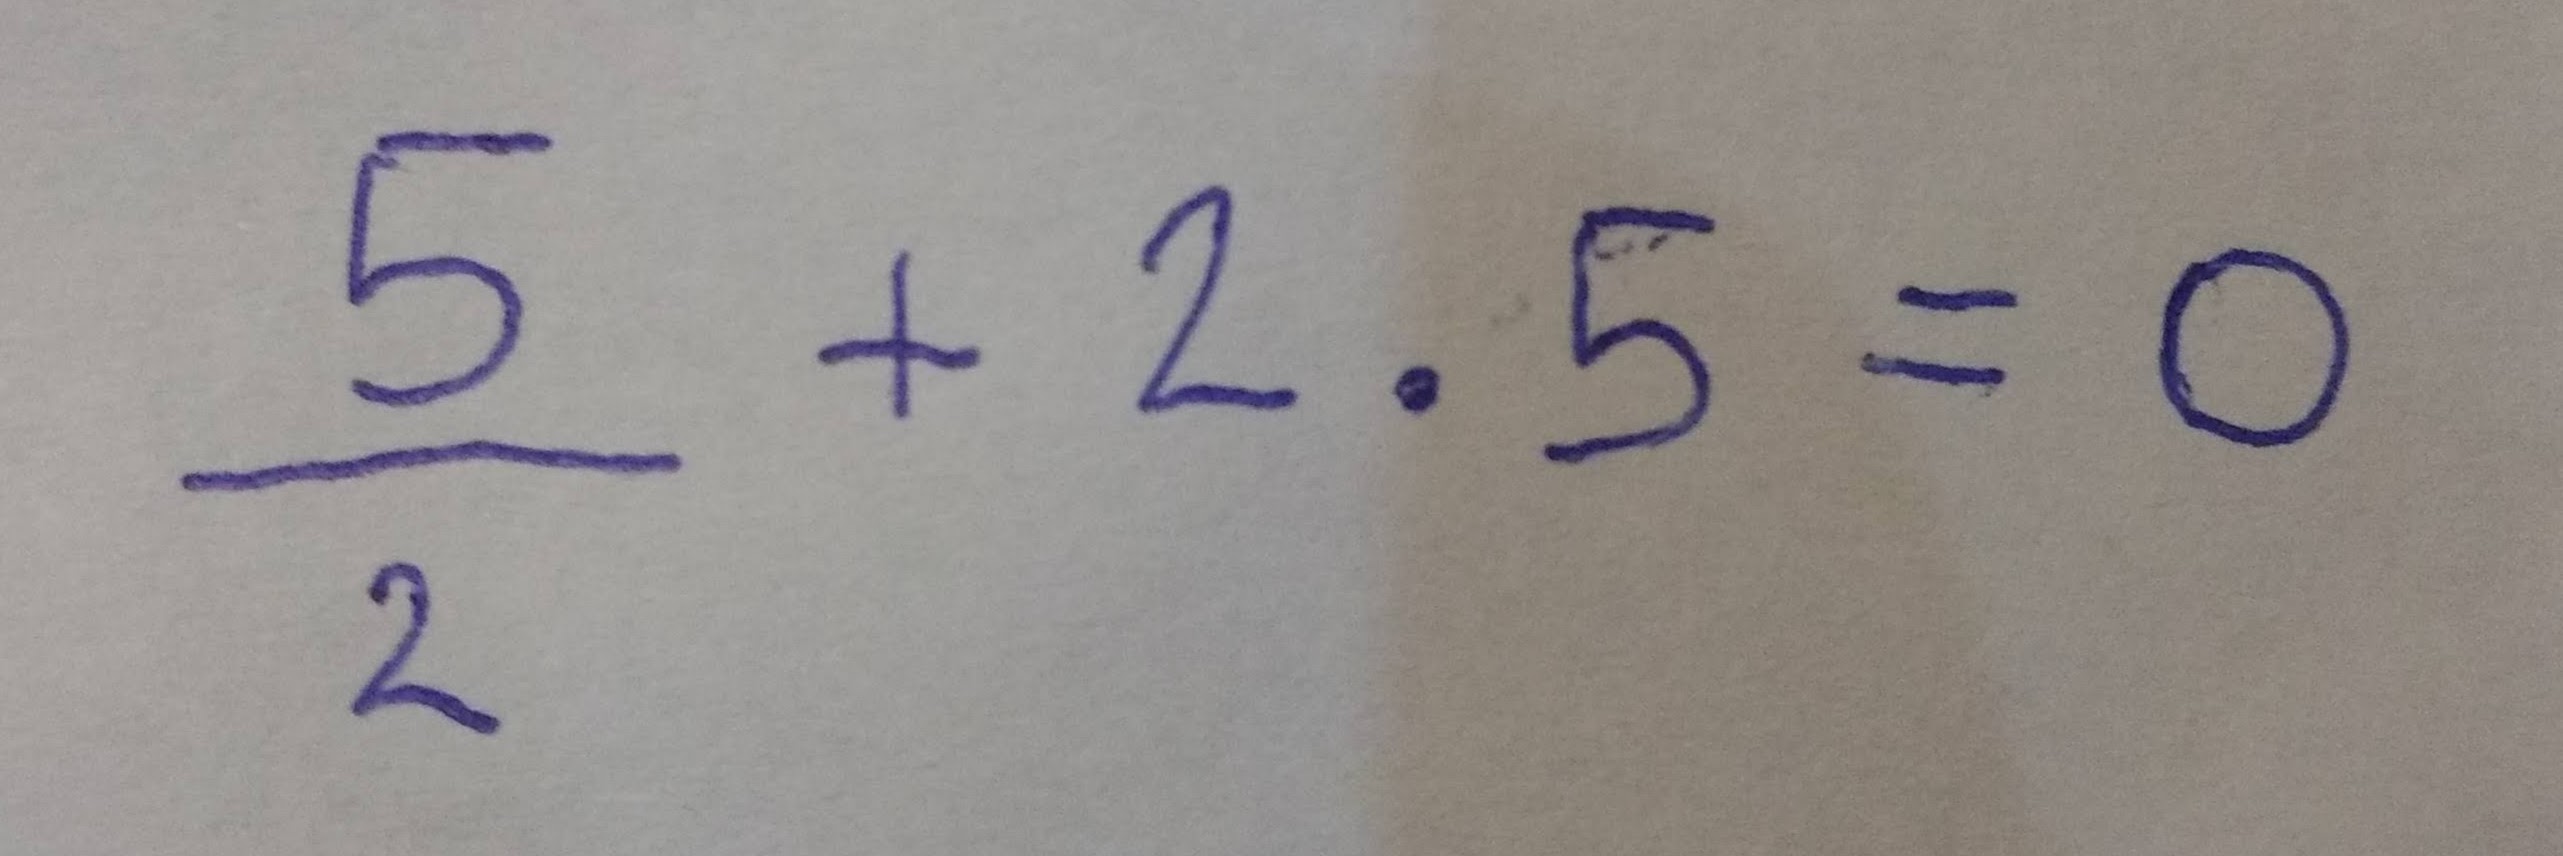 5/2 + 2 . 5 = 0